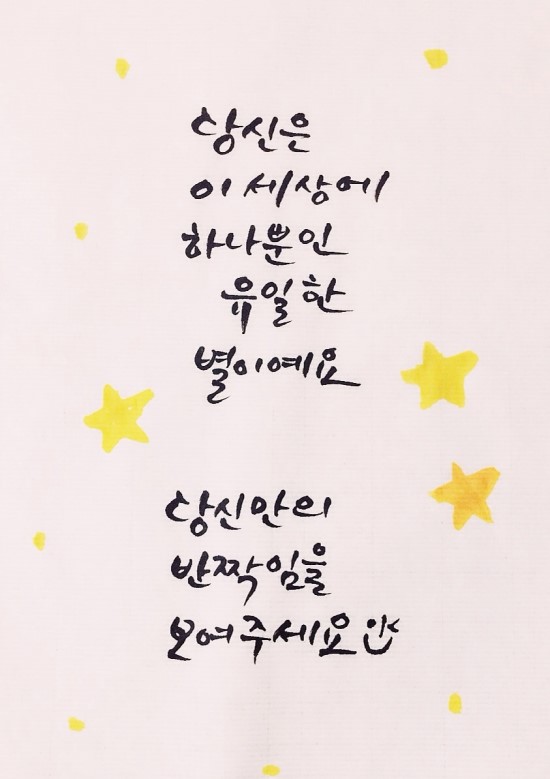 당신은
이 세상에
하나뿐인
유일한
별이예요
당신만의
반짝임을
보여주세요